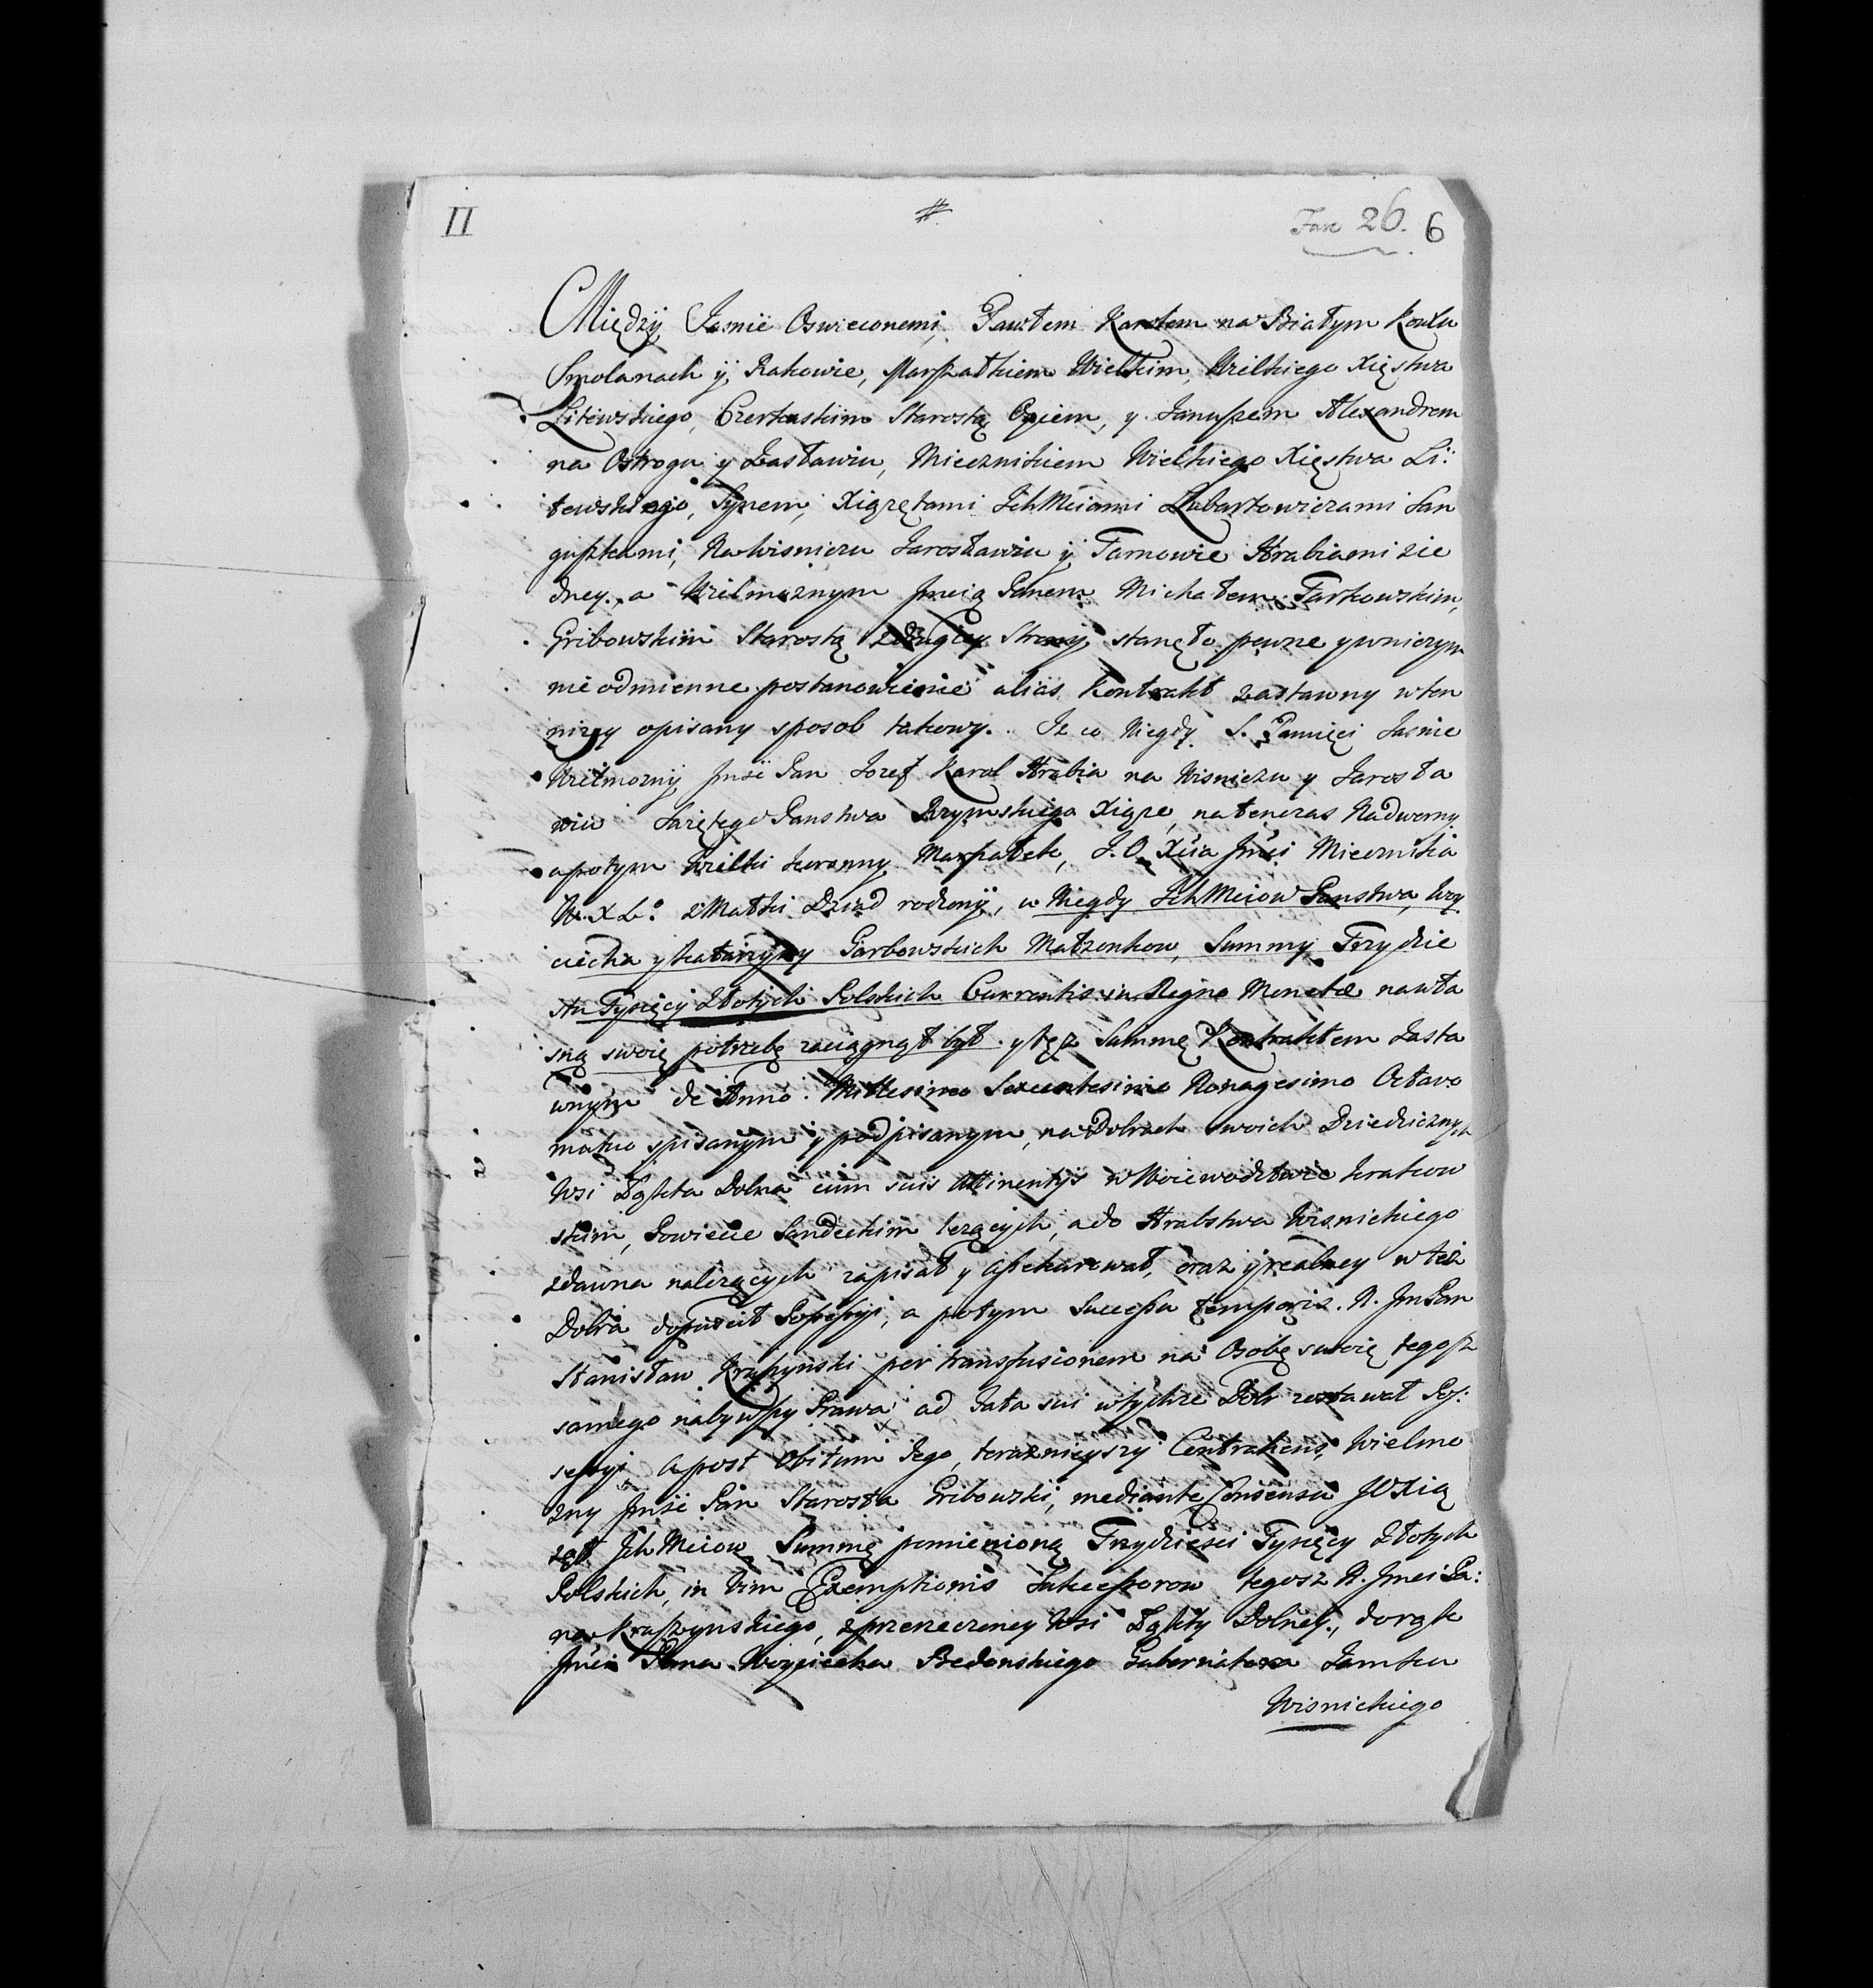 II # Fasc 26. 6
Między Jasnie Oswieconemi, Pawłem Karolem na Białym Kowlu
Smolanach y Rakowie, Marszałkiem Wielkim, Wielkiego Xięstwa
Litewskiego, Czerkaskim Starostą Oycem, y Januszem Alexandrem
na Ostrogu y Zasławiu, Miecznikiem Wielkiego Xięstwa Li:
tewskiego, Synem, Xiązętami IchMciami Lubartowiczami San
guszkami, Na Wisniczu Jarosławiu y Tarnowie Hrabiami zie
dney, a Wielmoznym Jmcią Panem Michałem Tarkowskim,
Gribowskim Starostą zdrugiey Strony stanęło pewne y wniczym
nie odmienne postanowienie alias Kontrakt zastawny w ten
nizey opisany sposob takowy. Iz co Niegdy S. Pamięci Jasnie
Wielmozny Jmsć Pan Jozef Karol Hrabia na Wisniczu y Jarosła
wiu Swiętego Panstwa Rzymskiego Xiąze, na tenczas Nadworny
a potym Wielki Koronny Marszałek, J. O. Xcia Jmci Miecznika
W. X L. z Matki Dziad rodzony, u Niegdy IchMciow Panstwa, Woy
ciecha y Katarzyny Garbowskich Małzonkow, Summy Trzydzie
stu Tysięcy Złotych Polskich Currentis in Regno Monetæ na wła
sną swoię potrzebę zaciągnął był y tęz Summę Kontraktem Zasta
wnym de Anno Millesimo Sexcentesimo Nonagesimo Octavo
make spisanym y podpisanym, na Dobrach swoich Dziedzicznych
Wsi Łąkta Dolna cum suis Attinentijs w Woiewodztwie Krakow
skim, Powiecie Sandeckim lezących, a do Hrabstwa Wisnickiego
zdawna nalezących zapisał y assekurował, oraz y realney w też
Dobra dopuscił Possessyi, a potym Successu temporis. N. Jm Pan
Stanisław Kraszynski per transfusionem na Osobę swoię tegosz
samego nabywszy Prawa ad Fata sui w tychze Dobr zostawał Pos:
sessyi, a post Obitum Jego, teraznieyszy Contrahens, Wielmo
zny Jmsć Pan Starosta Gribowski, mediante Consensu JO Xią
ząt IchMciow Summę pomienioną Trzydziesci Tysięcy Złotych
Polskich, in Vim Exemptionis Sukcessorow tegosz N. Jmci Pa:
na Kraszynskiego, z przerzeczoney Wsi Łąkty Dolney, do rąk
Jmci Pana Woyciecha Bedonskiego Gubernatora Zamku
Wisnickiego